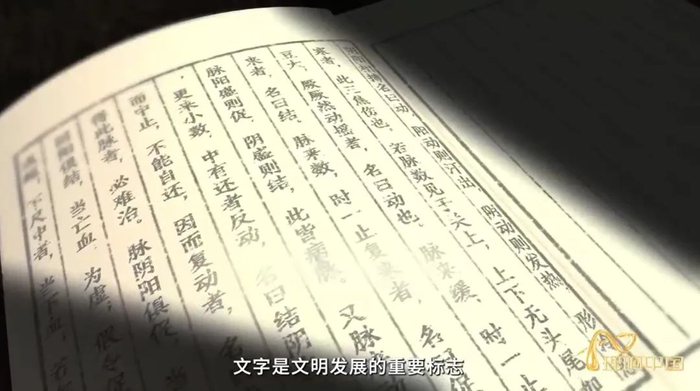 阴阳相搏名曰动，阳动则汗出，阴动则发热，形
寒者，此三焦伤也，若脉数见于关上，上下无头尾
豆大，厥厥然动摇者，名曰动也。脉来缓，时一
来者，名曰结。脉来数，时一止复来者，名曰
脉阳盛则促，阴盛则结，此皆病脉。又脉
更来小数，中有还者反动，名曰结阴
而中止，不能自还，因而复动者，名
得此脉者，必难治。脉阴阳俱促
阴阳俱结，当亡血，为虚，假令促
下尺中者，当下血，若
文字是文明发展的重要标志
中国